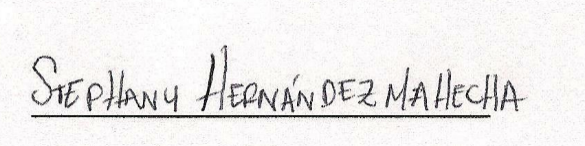 STEPHANY HERNÁNDEZ MAHECHA